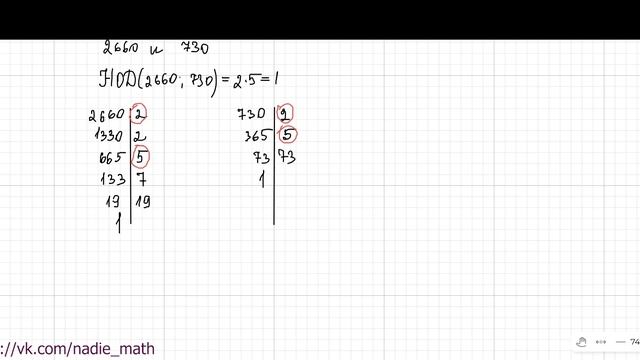 2660 и 730
НОД(2660; 730) = 2·5 = 1
2660 2 730 2
1330 2 365 5
665 5 73 73
133 7 1
19 19
1
://vk.com/nadie_math
74